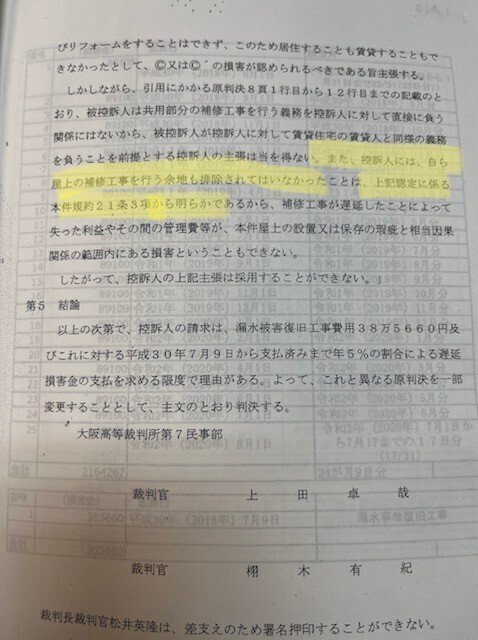 びリフォームをすることはできず、このため居住することも賃貸することもで
きなかったとして、Ⓒ又はⒸ´の損害が認められるべきである旨主張する。
しかしながら、引用にかかる原判決８頁１行目から１２行目までの記載のと
おり、被控訴人は共用部分の補修工事を行う義務を控訴人に対して直接に負う
関係にはないから、被控訴人が控訴人に対して賃貸住宅の賃貸人と同様の義務
を負うことを前提とする控訴人の主張は当を得ない。また、控訴人には、自ら
屋上の補修工事を行う余地も排除されてはいなかったことは、上記認定に係る
本件規約２１条３項から明らかであるから、補修工事が遅延したことによって
失った利益やその間の管理費等が、本件屋上の設置又は保存の瑕疵と相当因果
関係の範囲内にある損害ということもできない。
したがって、控訴人の上記主張は採用することができない。」
第５　結論
以上の次第で、控訴人の請求は、漏水被害復旧工事費用３８万５６６０円及
びこれに対する平成３０年７月９日から支払済みまで年５％の割合による遅延
損害金の支払を求める限度で理由がある。よって、これと異なる原判決を一部
変更することとして、主文のとおり判決する。
大阪高等裁判所第７民事部
裁判官　上　田　卓　哉
裁判官　栩　木　有　紀
裁判長裁判官松井英隆は、差支えのため署名押印することができない。